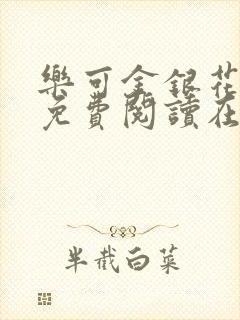 樂可金銀花
免費閱讀在
半截白菜